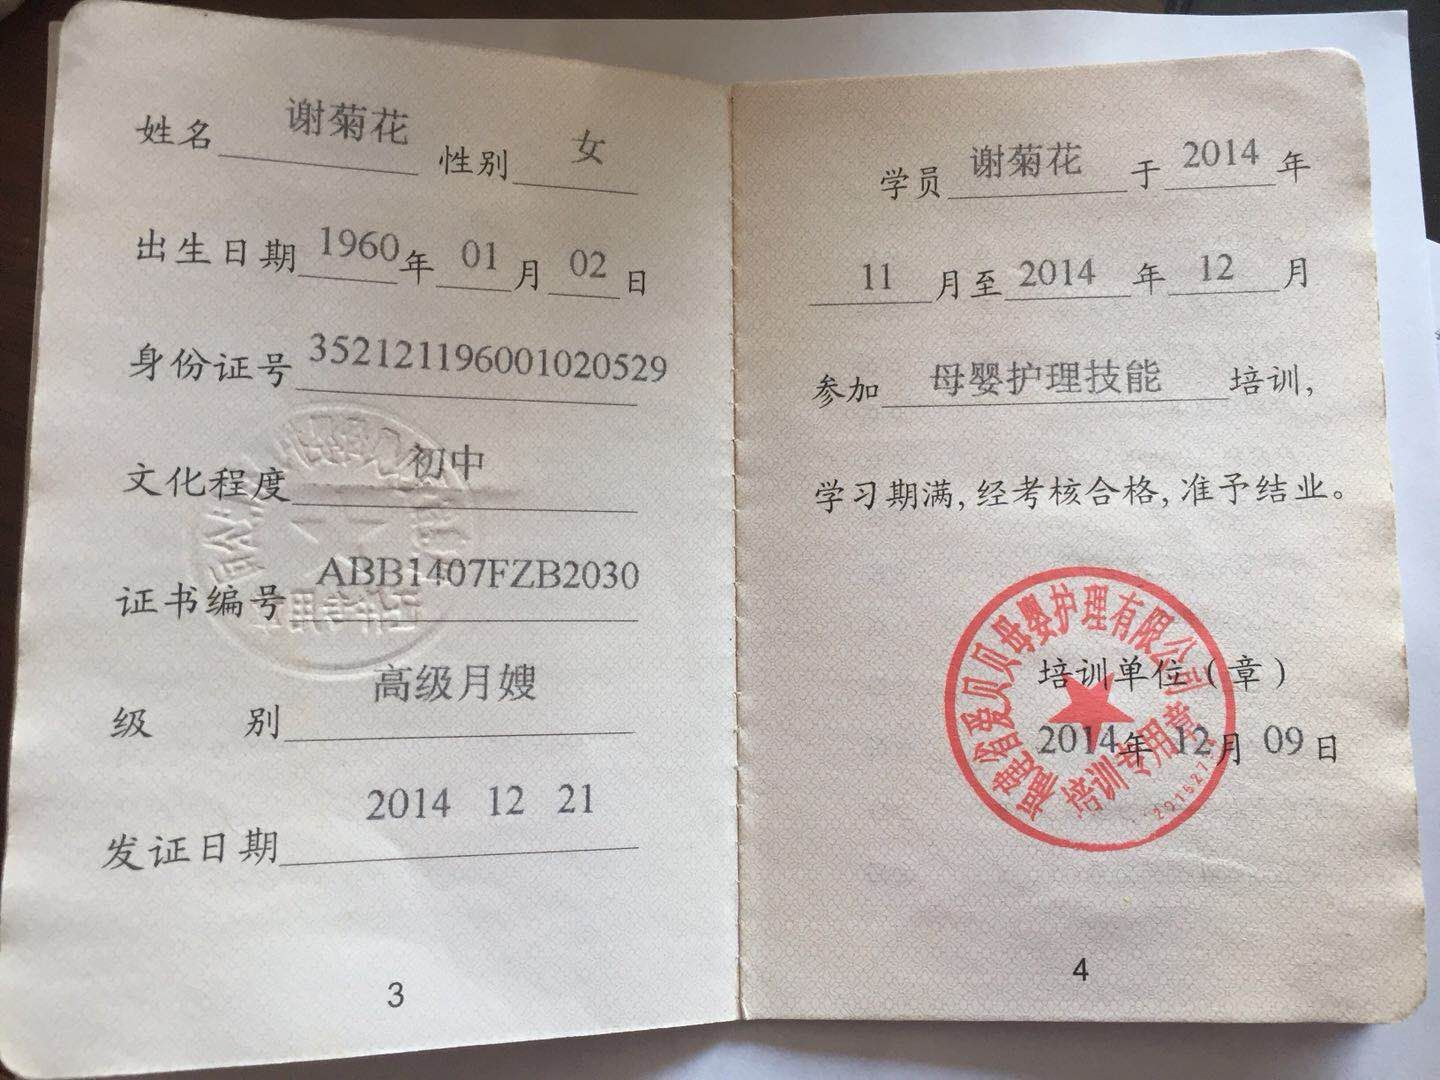 姓名 谢菊花 性别 女
出生日期 1960年 01月 02日
身份证号 352121196001020529
文化程度 初中
证书编号 ABB1407FZB2030
级 别 高级月嫂
发证日期 2014 12 21
证件专用
3
学员 谢菊花 于 2014 年
11 月至 2014 年 12 月
参加 母婴护理技能 培训,
学习期满,经考核合格,准予结业。
福建省爱贝贝母婴护理有限公司
培训单位(章)
2014年 12月 09日
培训专用章
4